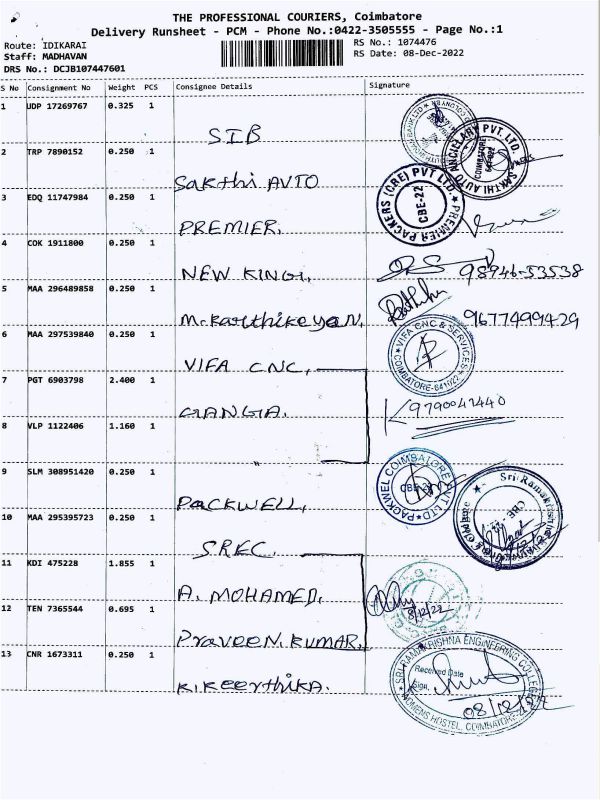 THE PROFESSIONAL COURIERS, Coimbatore
Delivery Runsheet - PCM - Phone No.:0422-3505555 - Page No.:1
Route: IDIKARAI RS No.: 1074476
Staff: MADHAVAN RS Date: 08-Dec-2022
DRS No.: DCJB107447601
S No Consignment No Weight PCS Consignee Details Signature
1 UDP 17269767 0.325 1
SIB
2 TRP 7890152 0.250 1
Sakthi AUTO
ANCILLARY PVT. LTD.
SAKTHI AUTO
COIMBATORE
3 EDQ 11747984 0.250 1
PREMIER.
PREMIER PACKERS (CBE) PVT LTD.
CBE-22
4 COK 1911800 0.250 1
NEW KING,
98946-53538
5 MAA 296489858 0.250 1
M.Karthikeyan,
9677499429
6 MAA 297539840 0.250 1
VIFA CNC,
VIFA CNC & SERVICES
COIMBATORE-641022
7 PGT 6903798 2.400 1
GANGA.
9790042440
8 VLP 1122406 1.160 1
9 SLM 308951420 0.250 1
PACKWELL,
PACKWEL COIMBATORE PVT LTD
CBE-22
10 MAA 295395723 0.250 1
SREC.
Sri Ramakrishna
CBE
11 KDI 475228 1.855 1
A. MOHAMED,
8/12/22
12 TEN 7365544 0.695 1
Praveen. KUMAR,
13 CNR 1673311 0.250 1
K.Keerthika.
SRI RAMAKRISHNA ENGINEERING COLLEGE
Received Date
Sign.
08/12/22
WOMENS HOSTEL, COIMBATORE-22